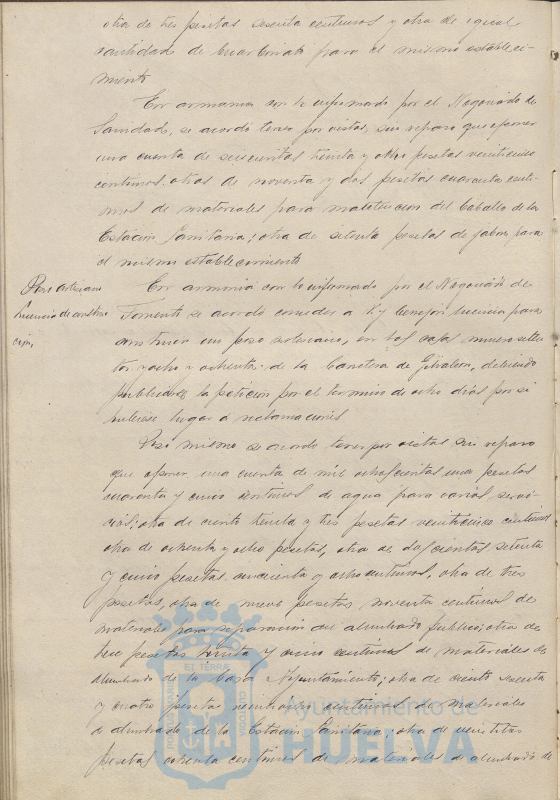 otra de tres pesetas sesenta centimos y otra de igual
cantidad de bicarbonato para el mismo estableci-
miento
En armonia con lo informado por el Negociado de
Sanidad, se acordó tener por vistas, sin reparo que oponer
una cuenta de seiscientas treinta y ocho pesetas veinticinco
centimos. otras de noventa y dos pesetas cuarenta centi-
mos de materiales para manutencion del Caballo de la
Estación Sanitaria; otra de setenta pesetas de jabon, para
el mismo establecimiento
Pozo artesiano
licencia de construc
cion,
En armonia con lo informado por el Negociado de
Fomento se acordó conceder a licencia para
construir un pozo artesiano, en las casas numero seten-
ta y ocho y ochenta de la Carretera de Gibraleon, debiendo
publicarse la peticion por el termino de ocho dias por si
hubiese lugar a reclamaciones
Asi mismo se acordo tener por vistas sin reparo
que oponer una cuenta de mil ochocientas una pesetas
cuarenta y cinco centimos de agua para varios servi-
cios; otra de ciento treinta y tres pesetas veinticinco centimos
otra de ochenta y ocho pesetas, otra de doscientas setenta
y cinco pesetas cincuenta y ocho centimos, otra de tres
pesetas, otra de nueve pesetas noventa centimos de
materiales para reparacion del alumbrado publico; otra de
pesetas treinta y cinco centimos de materiales de
alumbrado de la Casa Ayuntamiento; otra de ciento sesenta
y cuatro pesetas centimos de materiales
de alumbrado de la Estacion Sanitaria; otra de
pesetas ochenta centimos de materiales de alumbrado de
Ayuntamiento de
HUELVA